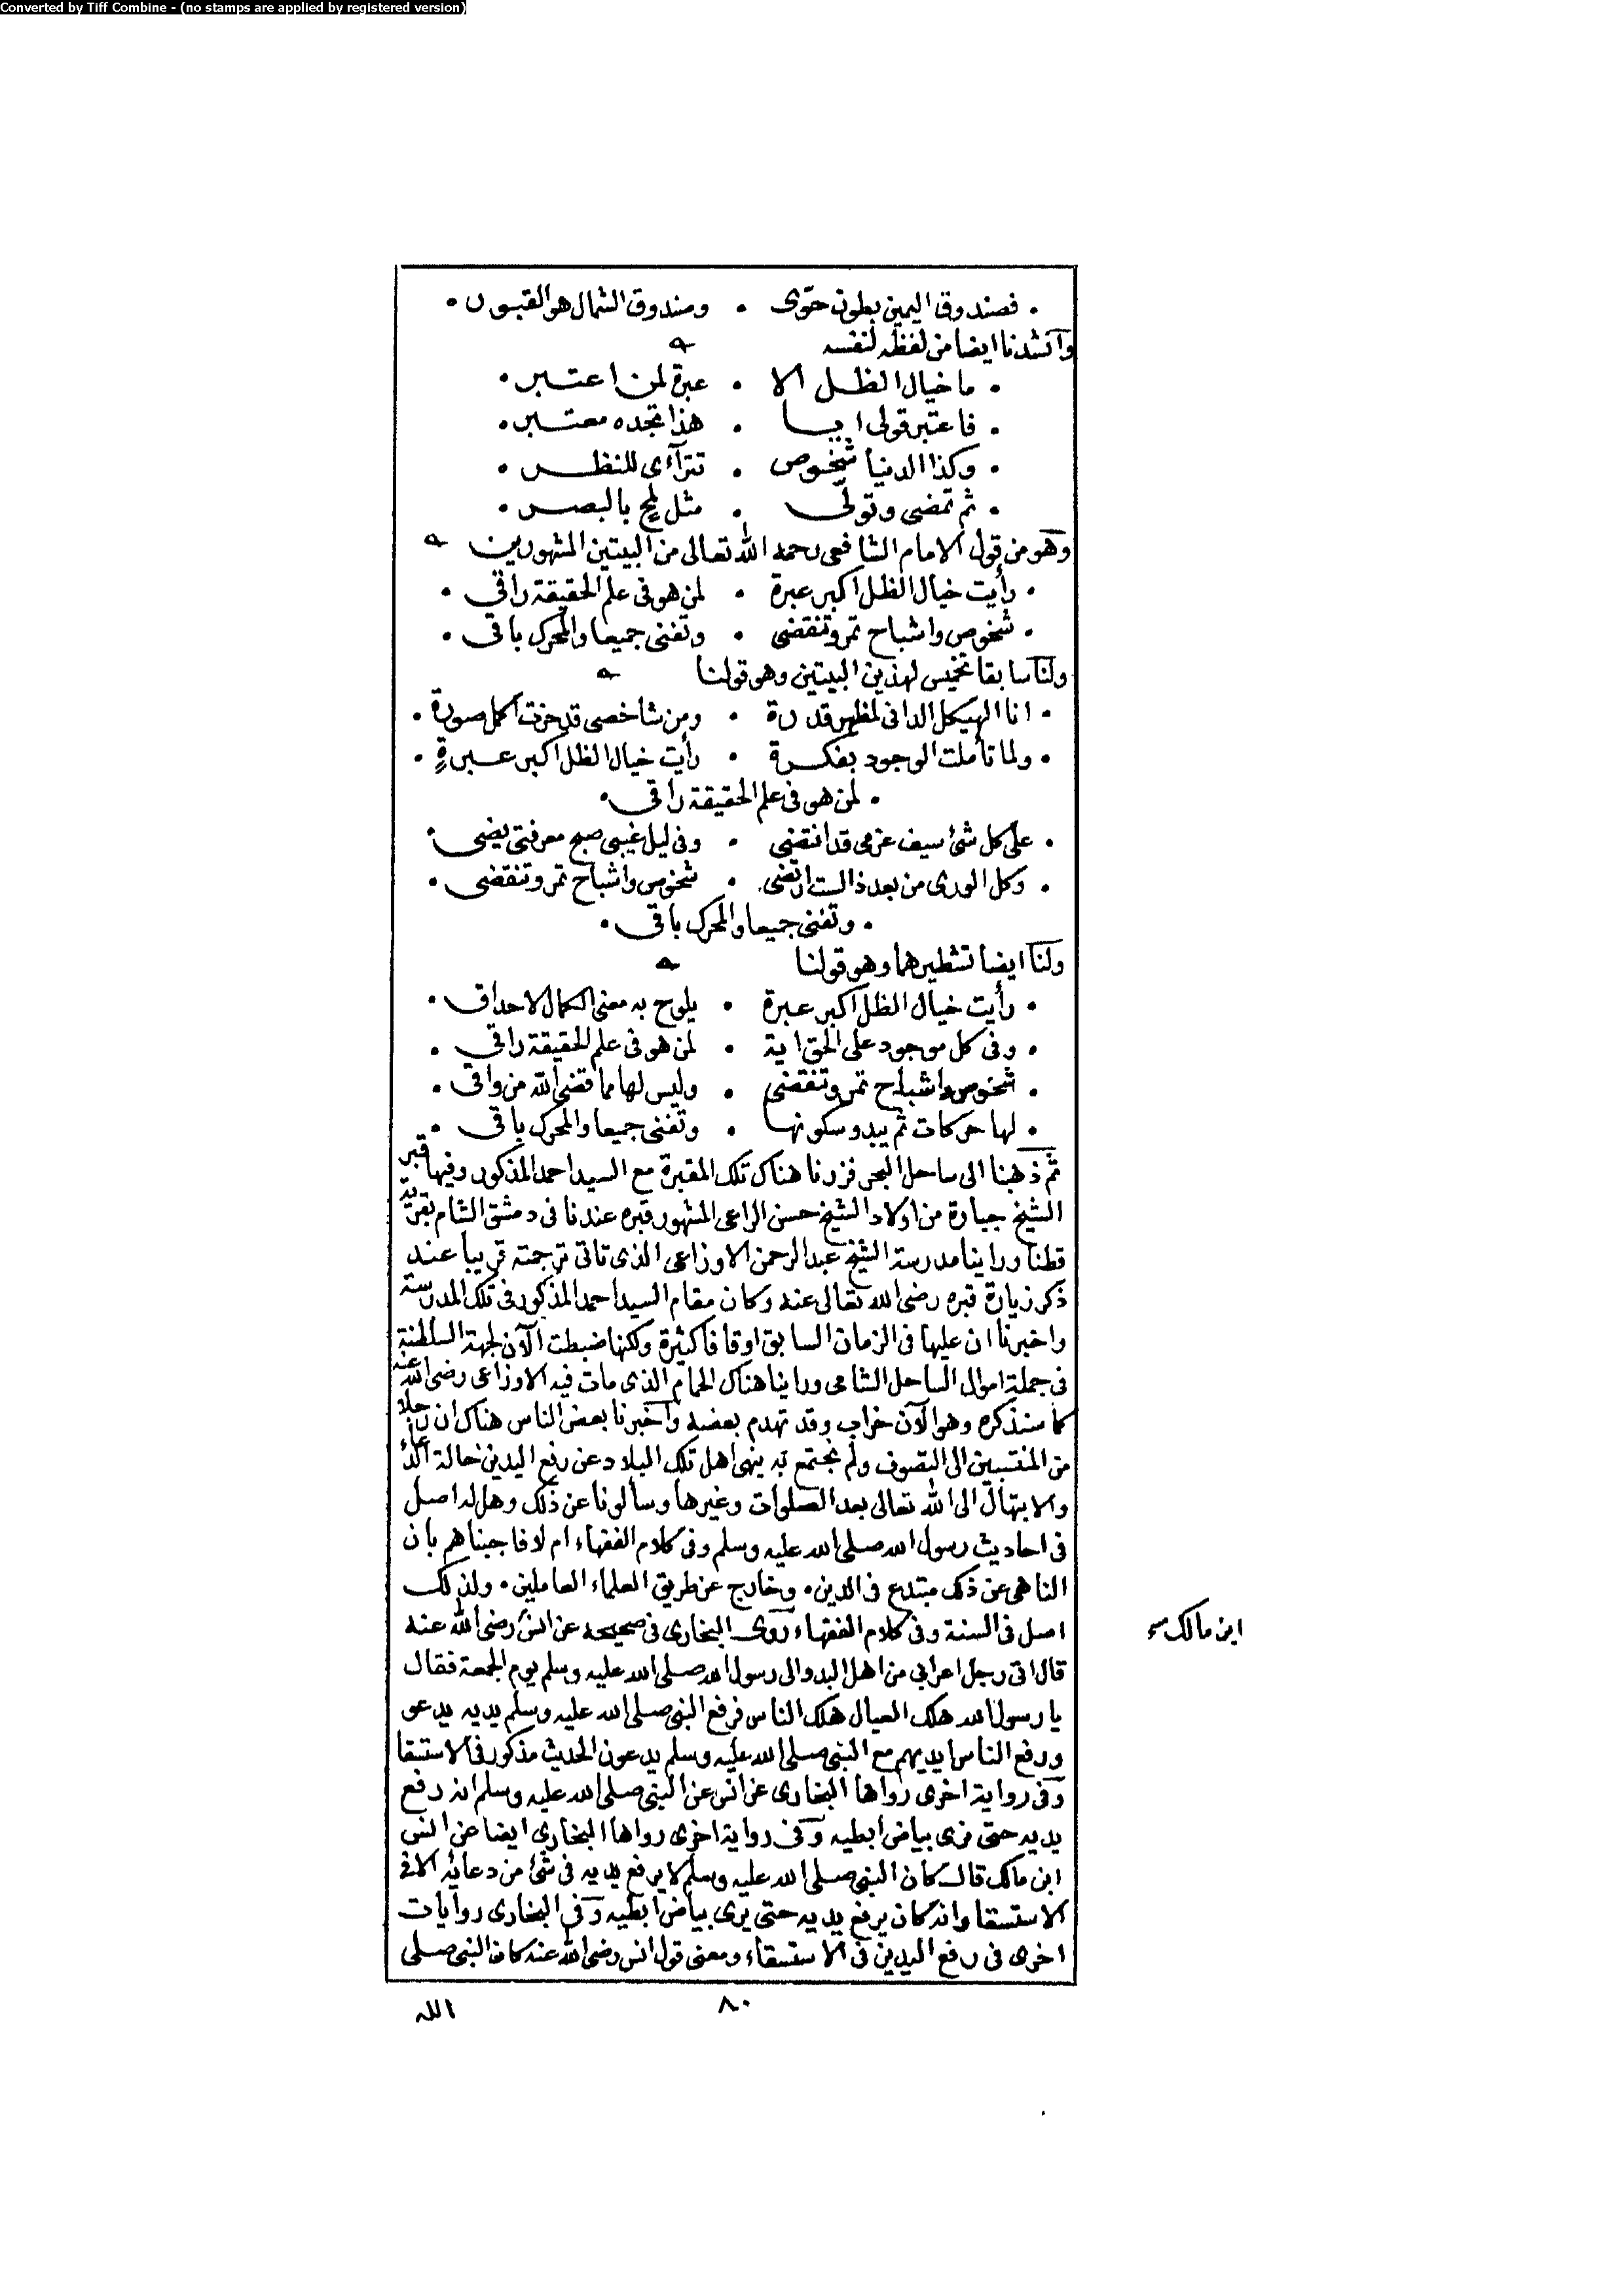 Converted by Tiff Combine - (no stamps are applied by registered version)
• فصندوق اليمين بطون حوّى • وصندوق الشمال هو القبور •
وانشدنا ايضا من لفظه لنفسه
• ما خيال الظل الا • عبرة لمن اعتبر •
• فاعتبر قولى ايا • هذا تجده معتبر •
• وكذا الدنيا شخوص • تتراءى للنظر •
• ثم تمضى وتولّى • مثل لمح بالبصر •
وهو من قول الامام الشافعى رحمه الله تعالى من البيتين المشهورين
• رأيت خيال الظل اكبر عبرة • لمن هو فى علم الحقيقة راقى •
• شخوص واشباح تمر وتنقضى • وتفنى جميعا والمحرك باقى •
ولنا سابقا تخميس لهذين البيتين وهو قولنا
• انا الهيكل الدانى لمظهر قدرة • ومن شاخصى قد حزت اكمل صورة •
• ولما تأملت الوجود بفكرة • رأيت خيال الظل اكبر عبرةٍ •
• لمن هو فى علم الحقيقة راقى •
• على كل شئ سيف عزمى قد انتضى • وفى ليل غيبى صبح معرفتى يضى •
• وكل الورى من بعد ذا الست ارتضى • شخوص واشباح تمر وتنقضى •
• وتفنى جميعا والمحرك باقى •
ولنا ايضا تشطيرهما وهو قولنا
• رأيت خيال الظل اكبر عبرة • يلوح به معنى الكمال لاحداق •
• وفى كل موجود على الحق اية • لمن هو فى علم الحقيقة راقي •
• شخوص واشباح تمر وتنقضى • وليس لها مما قضى الله من واقى •
• لها حركات ثم يبدو سكونها • وتفنى جميعا والمحرك باقى •
ثم ذهبنا الى ساحل البحر فزرنا هناك تلك المقبرة مع السيد احمد المذكور وفيها قبر
الشيخ جبارة من اولاد الشيخ حسن الراعى المشهور قبره عندنا فى دمشق الشام بقرية
قطنا وراينا مدرسة الشيخ عبد الرحمن الاوزاعى الذى تاتى ترجمته قريبا عند
ذكر زيارة قبره رضى الله تعالى عنه وكان مقام السيد احمد المذكور فى تلك المدرسة
واخبرنا ان عليها فى الزمان السابق اوقافا كثيرة ولكنها ضبطت الآن لجهة السلطنة
فى جملة اموال الساحل الشامى وراينا هناك الحمام الذى مات فيه الاوزاعى رضى الله عنه
كما سنذكره وهو الآن خراب وقد تهدم بعضه واخبرنا بعض الناس هناك ان رجلا
من المنتسبين الى التصوف ولم نجتمع به ينهى اهل تلك البلاد عن رفع اليدين حالة الدعاء
والابتهال الى الله تعالى بعد الصلوات وغيرها وسألونا عن ذلك وهل له اصل
فى احاديث رسول الله صلى الله عليه وسلم وفى كلام الفقهاء ام لا فاجبناهم بان
الناهى عن ذلك مبتدع فى الدين • وخارج عن طريق العلماء العاملين • ولذلك
اصل فى السنة وفى كلام الفقهاء روى البخارى فى صحيحه عن انس رضى الله عنه
ابن مالك
قال اتى رجل اعرابى من اهل البدو الى رسول الله صلى الله عليه وسلم يوم الجمعة فقال
يا رسول الله هلك العيال هلك الناس فرفع النبى صلى الله عليه وسلم يديه يدعو
ورفع الناس ايديهم مع النبى صلى الله عليه وسلم يدعون الحديث مذكور فى الاستسقا
وفى رواية اخرى رواها البخارى عن انس عن النبى صلى الله عليه وسلم انه رفع
يديه حتى نرى بياض ابطيه وفى رواية اخرى رواها البخارى ايضا عن انس
ابن مالك قال كان النبى صلى الله عليه وسلم لا يرفع يديه فى شئ من دعائه الا فى
الاستسقا وانه كان يرفع يديه حتى يرى بياض ابطيه وفى البخارى روايات
اخرى فى رفع اليدين فى الاستسقاء ومعنى قول انس رضى الله عنه كان النبى صلى
٨٠
الله